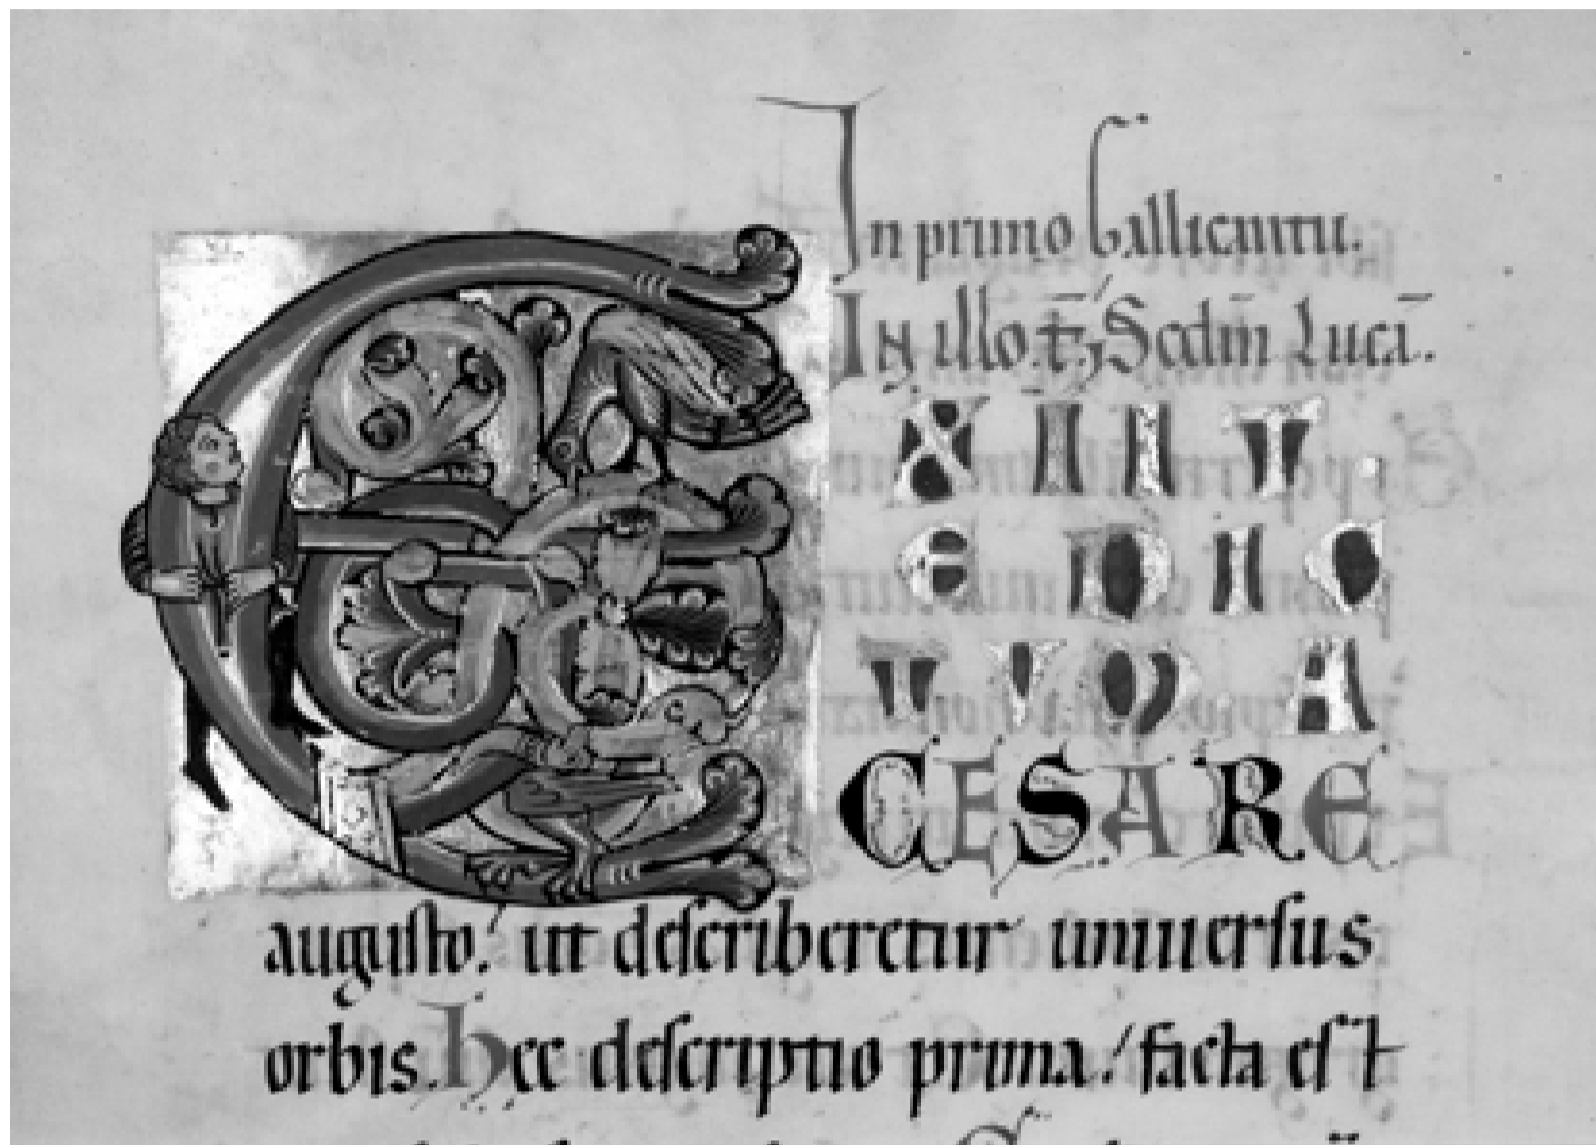 In primo Gallicantu.
In illo t̄; Scdm̄ Lucā.
E XIIT.
EDIC
TUM. A
CESARE
augusto. ut describeretur universus
orbis. Hec descriptio prima. facta est